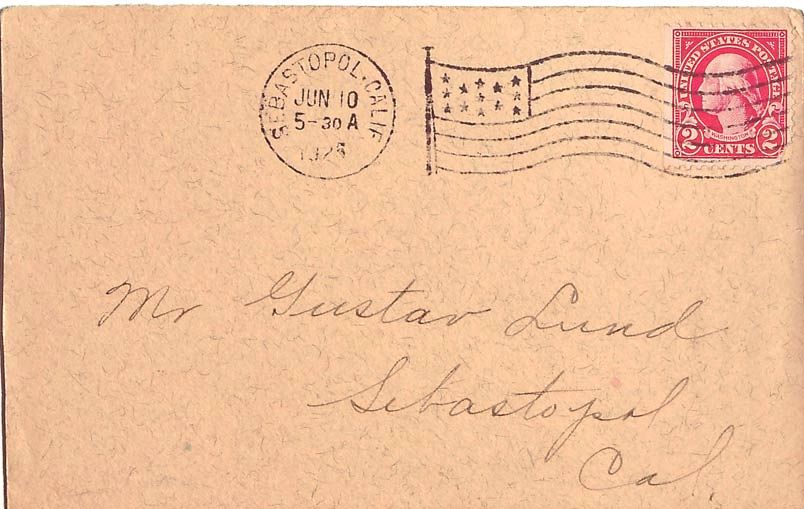 SEBASTOPOL, CALIF
JUN 10
5-30 A
UNITED STATES POSTAGE
WASHINGTON
2 CENTS 2
Mr Gustav Lund
Sebastopol
Cal.